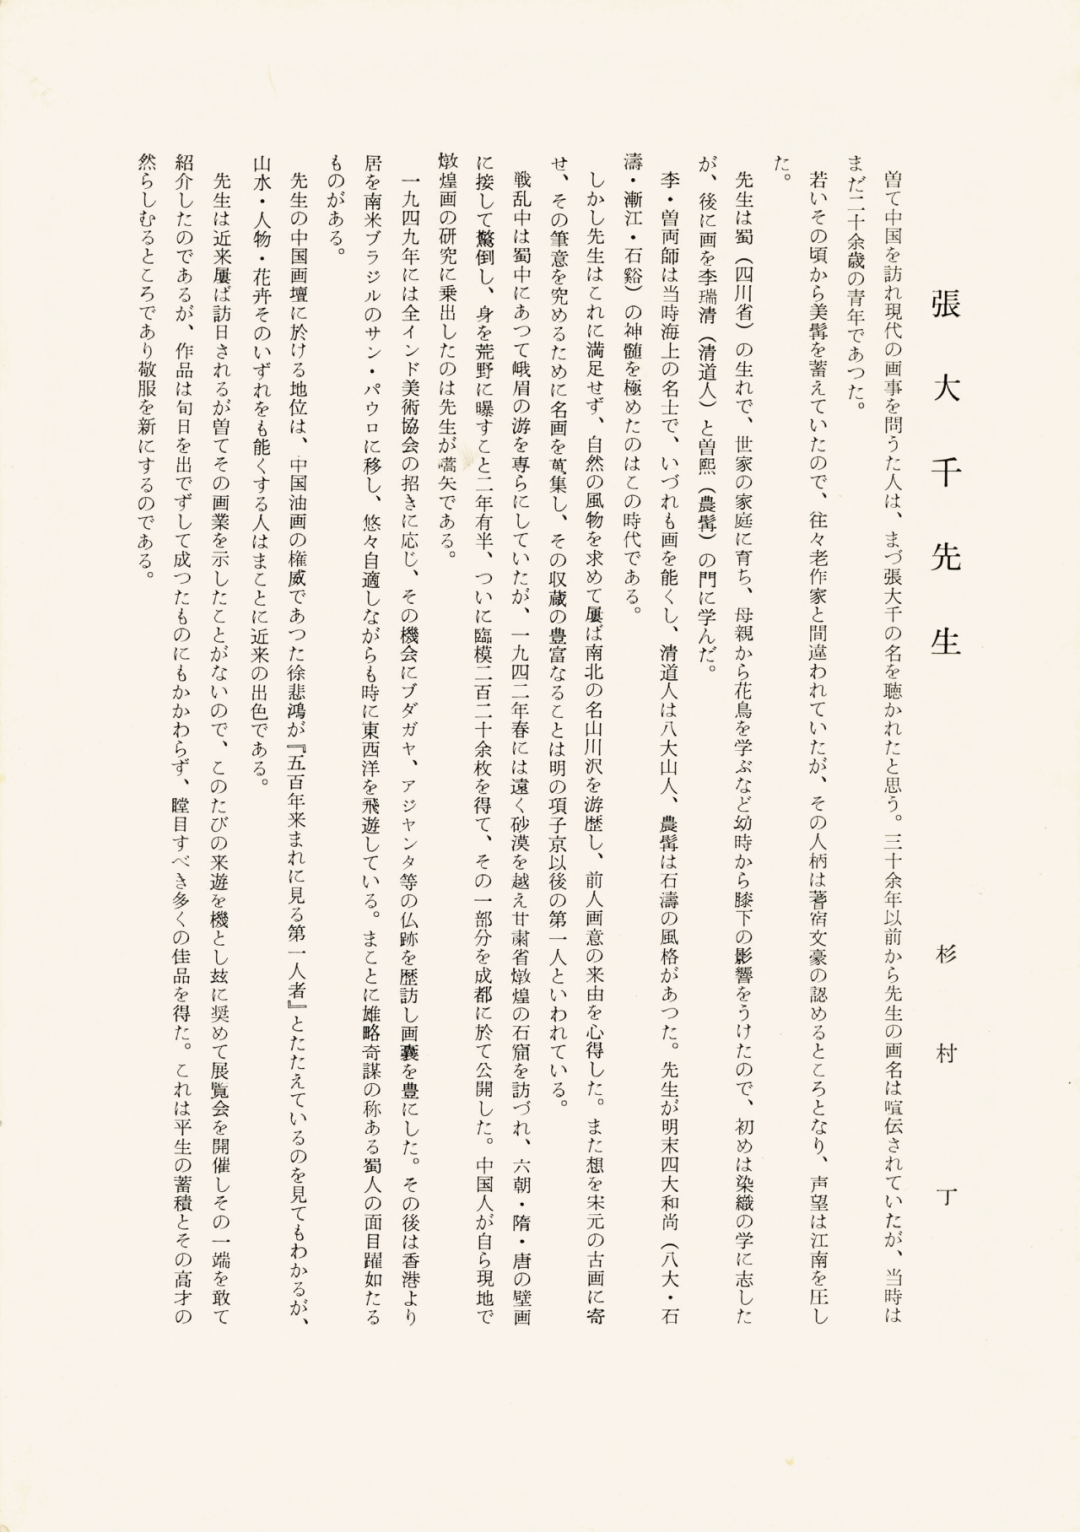 張大千先生
杉村丁
曽て中国を訪れ現代の画事を問うた人は、まづ張大千の名を聴かれたと思う。三十余年以前から先生の画名は喧伝されていたが、当時は
まだ二十余歳の青年であつた。
若いその頃から美髯を蓄えていたので、往々老作家と間違われていたが、その人柄は耆宿文豪の認めるところとなり、声望は江南を圧し
た。
先生は蜀（四川省）の生れで、世家の家庭に育ち、母親から花鳥を学ぶなど幼時から膝下の影響をうけたので、初めは染織の学に志した
が、後に画を李瑞清（清道人）と曽熙（農髯）の門に学んだ。
李・曽両師は当時海上の名士で、いづれも画を能くし、清道人は八大山人、農髯は石濤の風格があつた。先生が明末四大和尚（八大・石
濤・漸江・石谿）の神髄を極めたのはこの時代である。
しかし先生はこれに満足せず、自然の風物を求めて屢ば南北の名山川沢を游歴し、前人画意の来由を心得した。また想を宋元の古画に寄
せ、その筆意を究めるために名画を蒐集し、その収蔵の豊富なることは明の項子京以後の第一人といわれている。
戦乱中は蜀中にあつて峨眉の游を専らにしていたが、一九四二年春には遠く砂漠を越え甘粛省燉煌の石窟を訪づれ、六朝・隋・唐の壁画
に接して驚倒し、身を荒野に曝すこと二年有半、ついに臨模二百二十余枚を得て、その一部分を成都に於て公開した。中国人が自ら現地で
燉煌画の研究に乗出したのは先生が嚆矢である。
一九四九年には全インド美術協会の招きに応じ、その機会にブダガヤ、アジャンタ等の仏跡を歴訪し画嚢を豊にした。その後は香港より
居を南米ブラジルのサン・パウロに移し、悠々自適しながらも時に東西洋を飛遊している。まことに雄略奇謀の称ある蜀人の面目躍如たる
ものがある。
先生の中国画壇に於ける地位は、中国油画の権威であつた徐悲鴻が『五百年来まれに見る第一人者』とたたえているのを見てもわかるが、
山水・人物・花卉そのいずれをも能くする人はまことに近来の出色である。
先生は近来屢ば訪日されるが曽てその画業を示したことがないので、このたびの来遊を機とし玆に奨めて展覧会を開催しその一端を敢て
紹介したのであるが、作品は旬日を出でずして成つたものにもかかわらず、瞠目すべき多くの佳品を得た。これは平生の蓄積とその高才の
然らしむるところであり敬服を新にするのである。